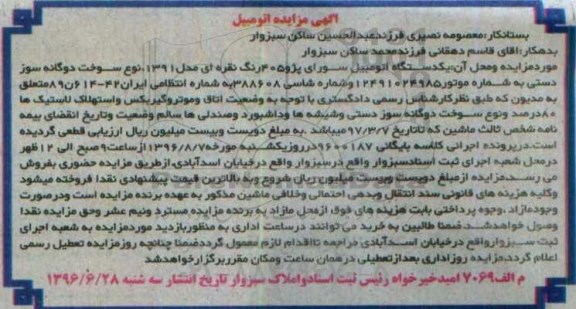 آگهی مزایده اتومبیل
بستانکار:معصومه نصیری فرزندعبدالحسین ساکن سبزوار
بدهکار:اقای قاسم دهقانی فرزندمحمد ساکن سبزوار
موردمزایده ومحل آن:یکدستگاه اتومبیل سواری پژو۴۰۵رنگ نقره ای مدل۱۳۹۱.نوع سوخت دوگانه سوز
دستی به شماره موتور۱۲۴۹۱۰۲۴۹۸۵وشماره شاسی ۳۸۸۶۰۸به شماره انتظامی ایران۴۲-۶۱۴ن۸۹متعلق
به مدیون که طبق نظرکارشناس رسمی دادگستری با توجه به وضعیت اتاق وموتروگیربکس واستهلاک لاستیک ها
۸۰درصد ونوع سوخت دوگانه سوز دستی وشیشه ها وداشبورد وصندلی ها سالم وضعیت وتاریخ انقضای بیمه
نامه شخص ثالث ماشین که تاتاریخ ۹۷/۳/۷میباشد .به مبلغ دویست وبیست میلیون ریال ارزیابی قطعی گردیده
است.درپرونده اجرائی کلاسه بایگانی ۹۶۰۰۱۸۷درروزیکشنبه مورخه۱۳۹۶/۸/۷ازساعت۹صبح الی ۱۲ظهر
درمحل شعبه اجرای ثبت اسنادسبزوار واقع درسبزوار واقع درخیابان اسدآبادی.ازطریق مزایده حضوری بفروش
می رسد.مزایده ازمبلغ دویست وبیست میلیون ریال شروع وبه بالاترین قیمت پیشنهادی نقدا فروخته میشود
وکلیه هزینه های قانونی سند انتقال وبدهی احتمالی وخلافی ماشین مذکور به عهده برنده مزایده است ودرصورت
وجودمازاد .وجوه پرداختی بابت هزینه های فوق ازمحل مازاد به برنده مزایده مسترد ونیم عشر وحق مزایده نقدا
وصول خواهدشد.ضمنا طالبین به خرید می توانند درساعت اداری به منظوربازدید موردمزایده به شعبه اجرای
ثبت سبزوارواقع درخیابان اسدآبادی مراجعه تااقدام لازم معمول گرددضمنا چنانچه روزمزایده تعطیل رسمی
اعلام گرددمزایده روزاداری بعدازتعطیلی درهمان ساعت ومکان مقرربرگزارخواهدشد
م الف۷۰۶۹ امیدخیرخواه رئیس ثبت اسنادواملاک سبزوار تاریخ انتشار سه شنبه ۱۳۹۶/۶/۲۸